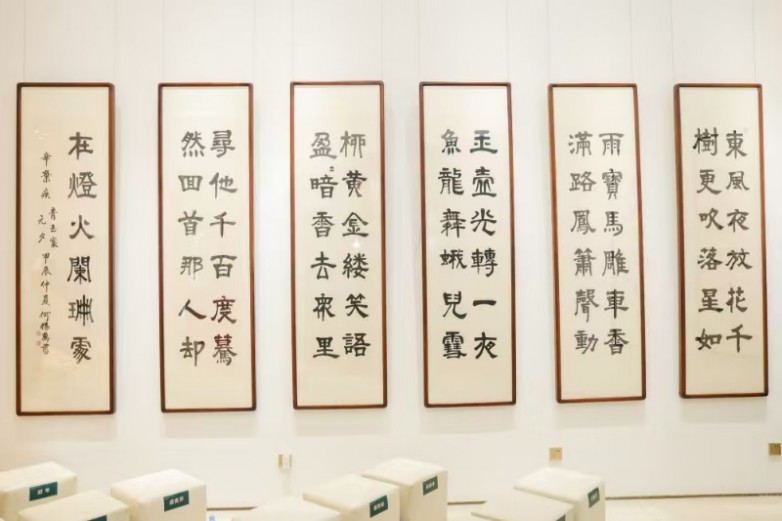 東風夜放花千
樹更吹落星如
雨寶馬雕車香
滿路鳳簫聲動
玉壺光轉一夜
魚龍舞蛾兒雪
柳黃金縷笑語
盈〻暗香去衆里
尋他千百度驀
然回首那人却
在燈火闌珊處
辛棄疾 青玉案 元夕 甲辰仲夏 何